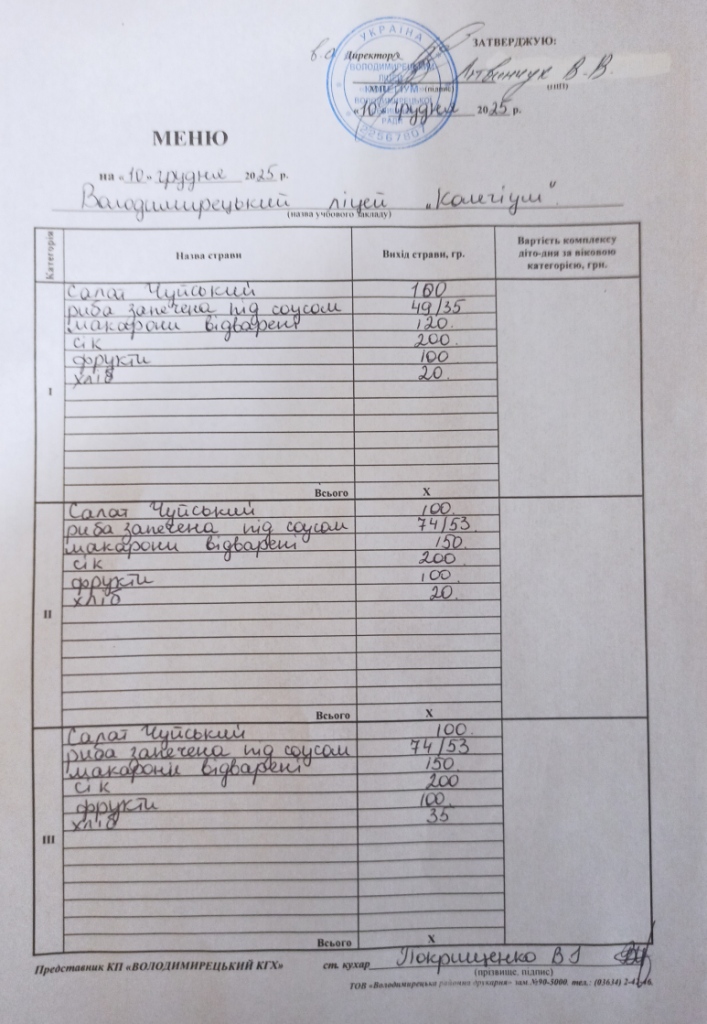 ЗАТВЕРДЖУЮ:
в.о. Директор
Літвинчук В.В.
(підпис) (ПІП)
«10» грудня 2025 р.
УКРАЇНА
МЕНЮ
на «10» грудня 2025 р.
Володимирецький ліцей „Колегіум"
(назва учбового закладу)
Категорія Назва страви Вихід страви, гр. Вартість комплексу діто-дня за віковою категорією, грн.
I
Салат Чуйський 100
риба запечена під соусом 49/35
макарони відварені 120.
сік 200.
фрукти 100
хліб 20.
Всього X
II
Салат Чуйський 100.
риба запечена під соусом 74/53.
макарони відварені 150.
сік 200
фрукти 100.
хліб 20.
Всього X
III
Салат Чуйський 100.
риба запечена під соусом 74/53
макарони відварені 150.
сік 200
фрукти 100.
хліб 35
Всього X
Представник КП «ВОЛОДИМИРЕЦЬКИЙ КГХ» ст. кухар Покрищенко В І
(прізвище, підпис)
ТОВ «Володимирецька районна друкарня» зам. №90-5000. тел.: (03634)